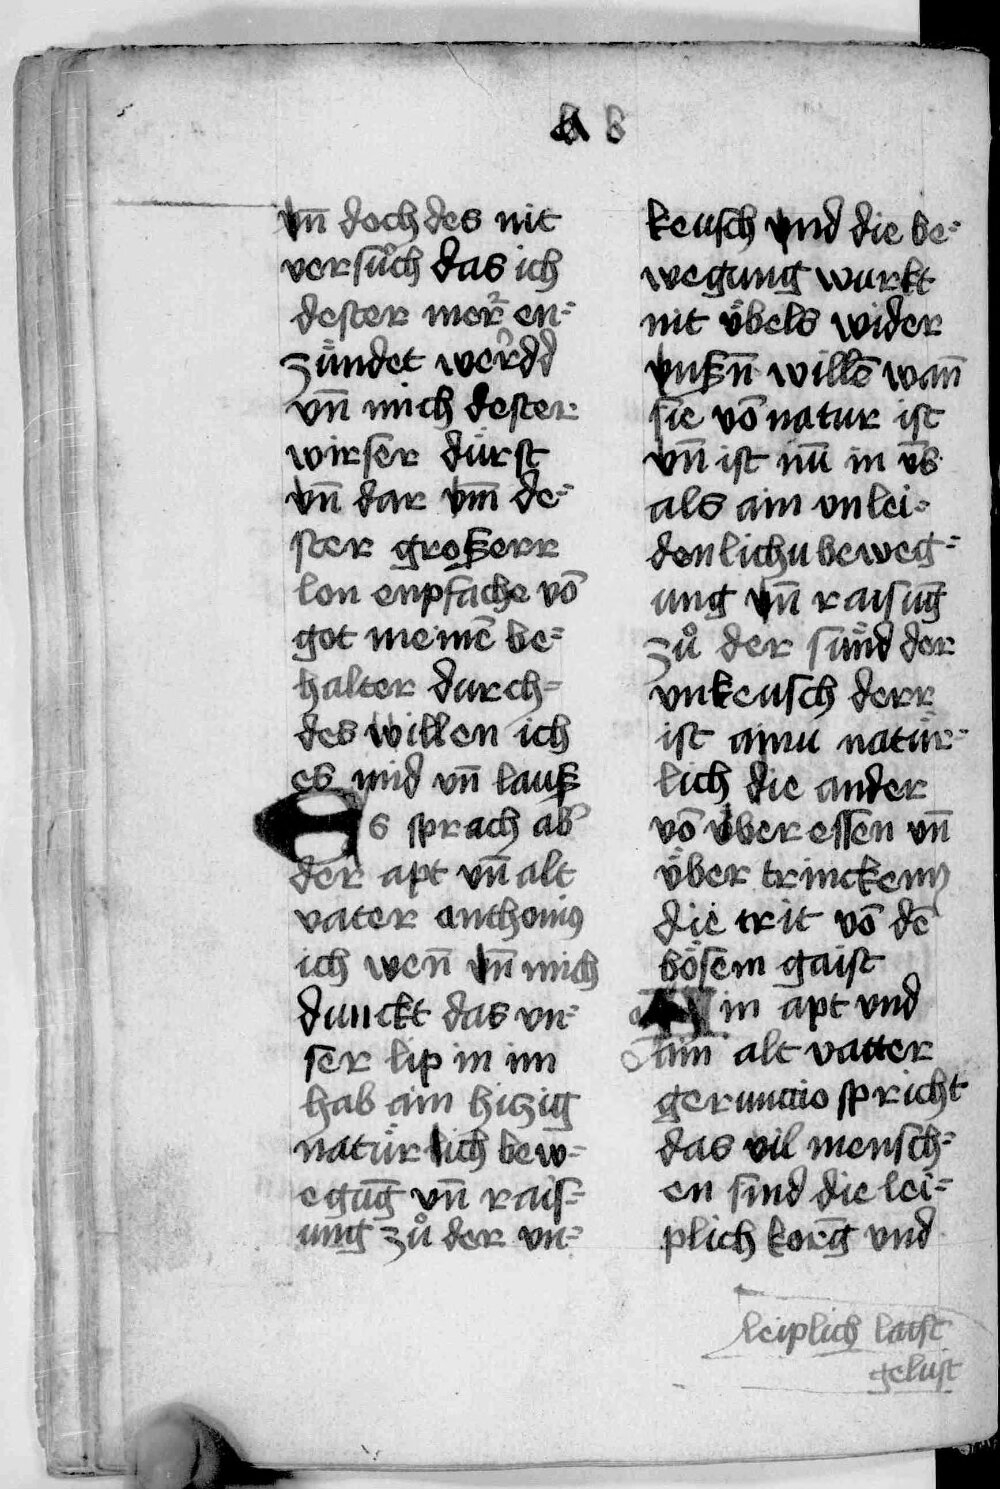 b b
vn̄ doch des nit
versuͦch das ich
dester mer en⸗
zündet werdd
vn̄ mich dester
wirser dürst
vn̄ dar vm̄ de⸗
ster groẞerr
lon enpfache vō
got meinē be⸗
halter durch⸗
des willen ich
es mid vn̄ lauß
Es sprach ab
der apt vn̄ alt
vater anthonius
ich wen̄ vn̄ mich
dunckt das vn⸗
ser lip in im
hab ain hiczig
natürlich bew⸗
egūg vn̄ rais⸗
ung zuͦ der vn⸗
keusch vnd die be⸗
wegung wurkt
nit übels wider
vnßn̄ willē wan̄
sie vō natur ist
vn̄ ist nū in v̄s
als ain vnlei⸗
denlichu beweg⸗
ung vn̄ raisūg
zuͦ der sünd der
vnkeusch derr
ist ainu natür⸗
lich die ander
vō über essen vn̄
über trincken
die trit vō dē
bösem gaist
in apt vnd
ain alt vatter
geruncio spricht
das vil mensch⸗
en sind die lei⸗
plich korḡ vnd
leiplich laist
gelust